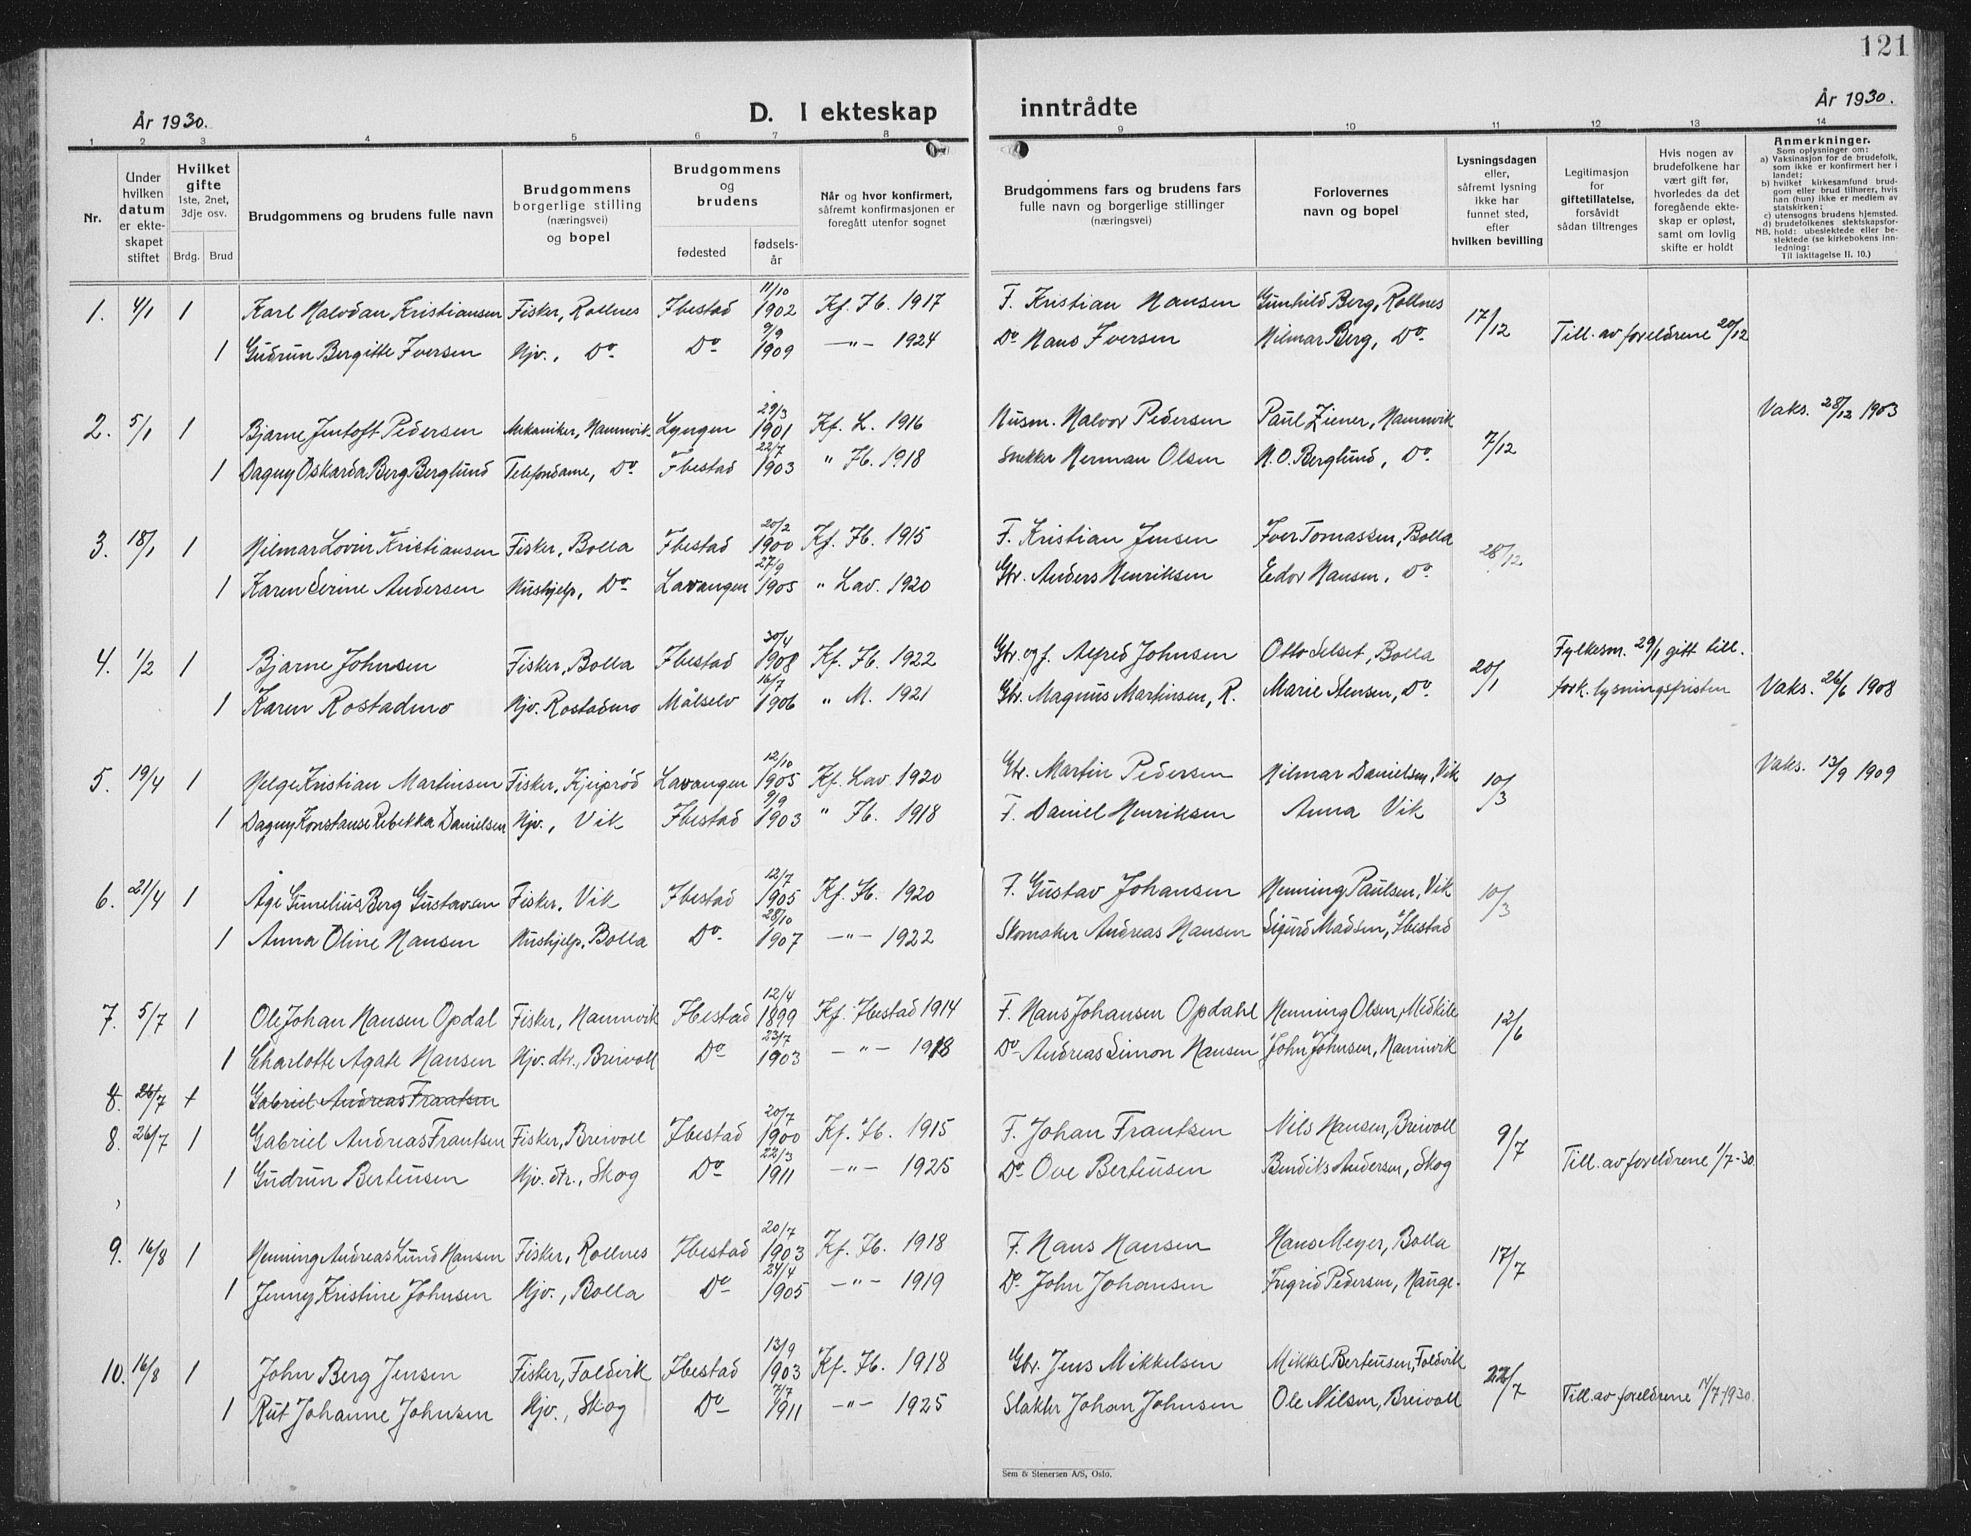 121
År 1930.
D. I ekteskap inntrådte
År 1930.
1 2 3 4 5 6 7 8 9 10 11 12 13 14
Nr.
Under hvilken datum er ekteskapet stiftet
Hvilket gifte 1ste, 2net, 3dje osv.
Brdg. Brud
Brudgommens og brudens fulle navn
Brudgommens borgerlige stilling (næringsvei) og bopel
Brudgommens og brudens
fødested
fødsels-år
Når og hvor konfirmert, såfremt konfirmasjonen er foregått utenfor sognet
Brudgommens fars og brudens fars fulle navn og borgerlige stillinger (næringsvei)
Forlovernes navn og bopel
Lysningsdagen eller, såfremt lysning ikke har funnet sted, efter hvilken bevilling
Legitimasjon for giftetillatelse, forsåvidt sådan tiltrenges
Hvis nogen av brudefolkene har vært gift før, hvorledes da det foregående ekteskap er opløst, samt om lovlig skifte er holdt
Anmerkninger.
Som oplysninger om:
a) Vaksinasjon for de brudefolk, som ikke er konfirmert her i landet;
b) hvilket kirkesamfund brudgom eller brud tilhører, hvis han (hun) ikke er medlem av statskirken;
c) utensogns brudens hjemsted.
d) brudefolkenes slektskapsforhold: ubeslektede eller beslektede (se kirkebokens innledning:
NB.
Til iakttagelse II. 10.)
1. 4/1 1 Karl Halvdan Kristiansen Fisker, Rollnes Ibestad 11/10 1902 Kf. Ib. 1917 F. Kristian Hansen Gunhild Berg, Rollnes 17/12
1 Gudrun Bergitte Iversen Hjv., Do Do 9/9 1909 —"— 1924 Do Hans Iversen Hilmar Berg, Do. Till. av foreldrene 20/12
2. 5/1 1 Bjarne Jentoft Pedersen Mekaniker, Hamnvik Lyngen 29/3 1901 Kf. L. 1916 Husm. Halvor Pedersen Paul Ziener, Hamnvik 7/12 Vaks. 28/12 1903
1 Dagny Oskarda Berg Berglund Telefondame, Do Ibestad 22/7 1903 " Ib. 1918 Snekker Herman Olsen H.O. Berglund, Do.
3. 18/1 1 Hilmar Lovin Kristiansen Fisker, Bolla Ibestad 20/2 1900 Kf. Ib. 1915 F. Kristian Jensen Iver Tomassen, Bolla 28/12
1 Karen Serine Andersen Hushjelp, Do Lavangen 27/9 1905 " Lav. 1920 Gbr. Anders Henriksen Edor Hansen, Do.
4. 1/2 1 Bjarne Johnsen Fisker, Bolla Ibestad 30/4 1908 Kf. Ib. 1922 Gbr. og f. Alfred Johnsen Otto Selset, Bolla 20/1 Fylkesm. 29/1 gitt till.
1 Karen Rostadmo Hjv. Rostadmo Målselv 16/7 1906 " M. 1921 Gbr. Magnus Martinsen, R. Marie Stensen, Do. fork. lysningsfristen Vaks. 26/6 1908
5. 19/4 1 Helge Kristian Martinsen Fisker, Kjeiprød Lavangen 12/10 1905 Kf. Lav. 1920 Gbr. Martin Pedersen Hilmar Danielsen, Vik 10/3 Vaks. 13/9 1909
1 Dagny Konstanse Rebekka Danielsen Hjv., Vik Ibestad 9/9 1903 " Ib. 1918 F. Daniel Henriksen Anna Vik
6. 21/4 1 Åge Cornelius Berg Gustavsen Fisker, Vik Ibestad 12/7 1905 Kf. Ib. 1920 F. Gustav Johansen Henning Paulsen, Vik 10/3
1 Anna Oline Hansen Hushjelp, Bolla Do. 28/10 1907 —"— 1922 Skomaker Andreas Hansen Sigurd Madsen, Ibestad
7. 5/7 1 Ole Johan Hansen Opdal Fisker, Hamnvik Ibestad 12/4 1899 Kf. Ibestad 1914 F. Hans Johansen Opdahl Henning Olsen, Medkile 12/6
1 Charlotte Agate Hansen Hjv. dtr., Breivoll Do 23/7 1903 —"— 1918 Do. Andreas Simon Hansen John Johnsen, Hamnvik
8. 26/7 1 Gabriel Andreas Frantsen
8. 26/7 1 Gabriel Andreas Frantsen Fisker, Breivoll Ibestad 20/7 1900 Kf. Ib. 1915 F. Johan Frantsen Nils Hansen, Breivoll 9/7
1 Gudrun Berteusen Hjv. dtr., Skog Do 22/3 1911 —"— 1925 Do. Ove Berteusen Bendiks Andersen, Skog Till. av foreldrene 1/7-30.
9. 16/8 1 Henning Andreas Lund Hansen Fisker, Rollnes Ibestad 20/7 1903 Kf. Ib. 1918 F. Hans Hansen Hans Meyer, Bolla 17/7
1 Jenny Kristine Johnsen Hjv., Bolla Do 24/4 1905 —"— 1919 Do. John Johansen Ingrid Pedersen, Hauge.
10. 16/8 1 John Berg Jensen Fisker, Foldvik Ibestad 13/9 1903 Kf. Ib. 1918 Gbr. Jens Mikkelsen Mikkel Berteusen, Foldvik 22/7
1 Rut Johanne Johnsen Hjv., Skog Do 7/7 1911 —"— 1925 Slakter Johan Johnsen Ole Nilsen, Breivoll Till av foreldrene 17/7-1930.
Sem & Stenersen A/S, Oslo.